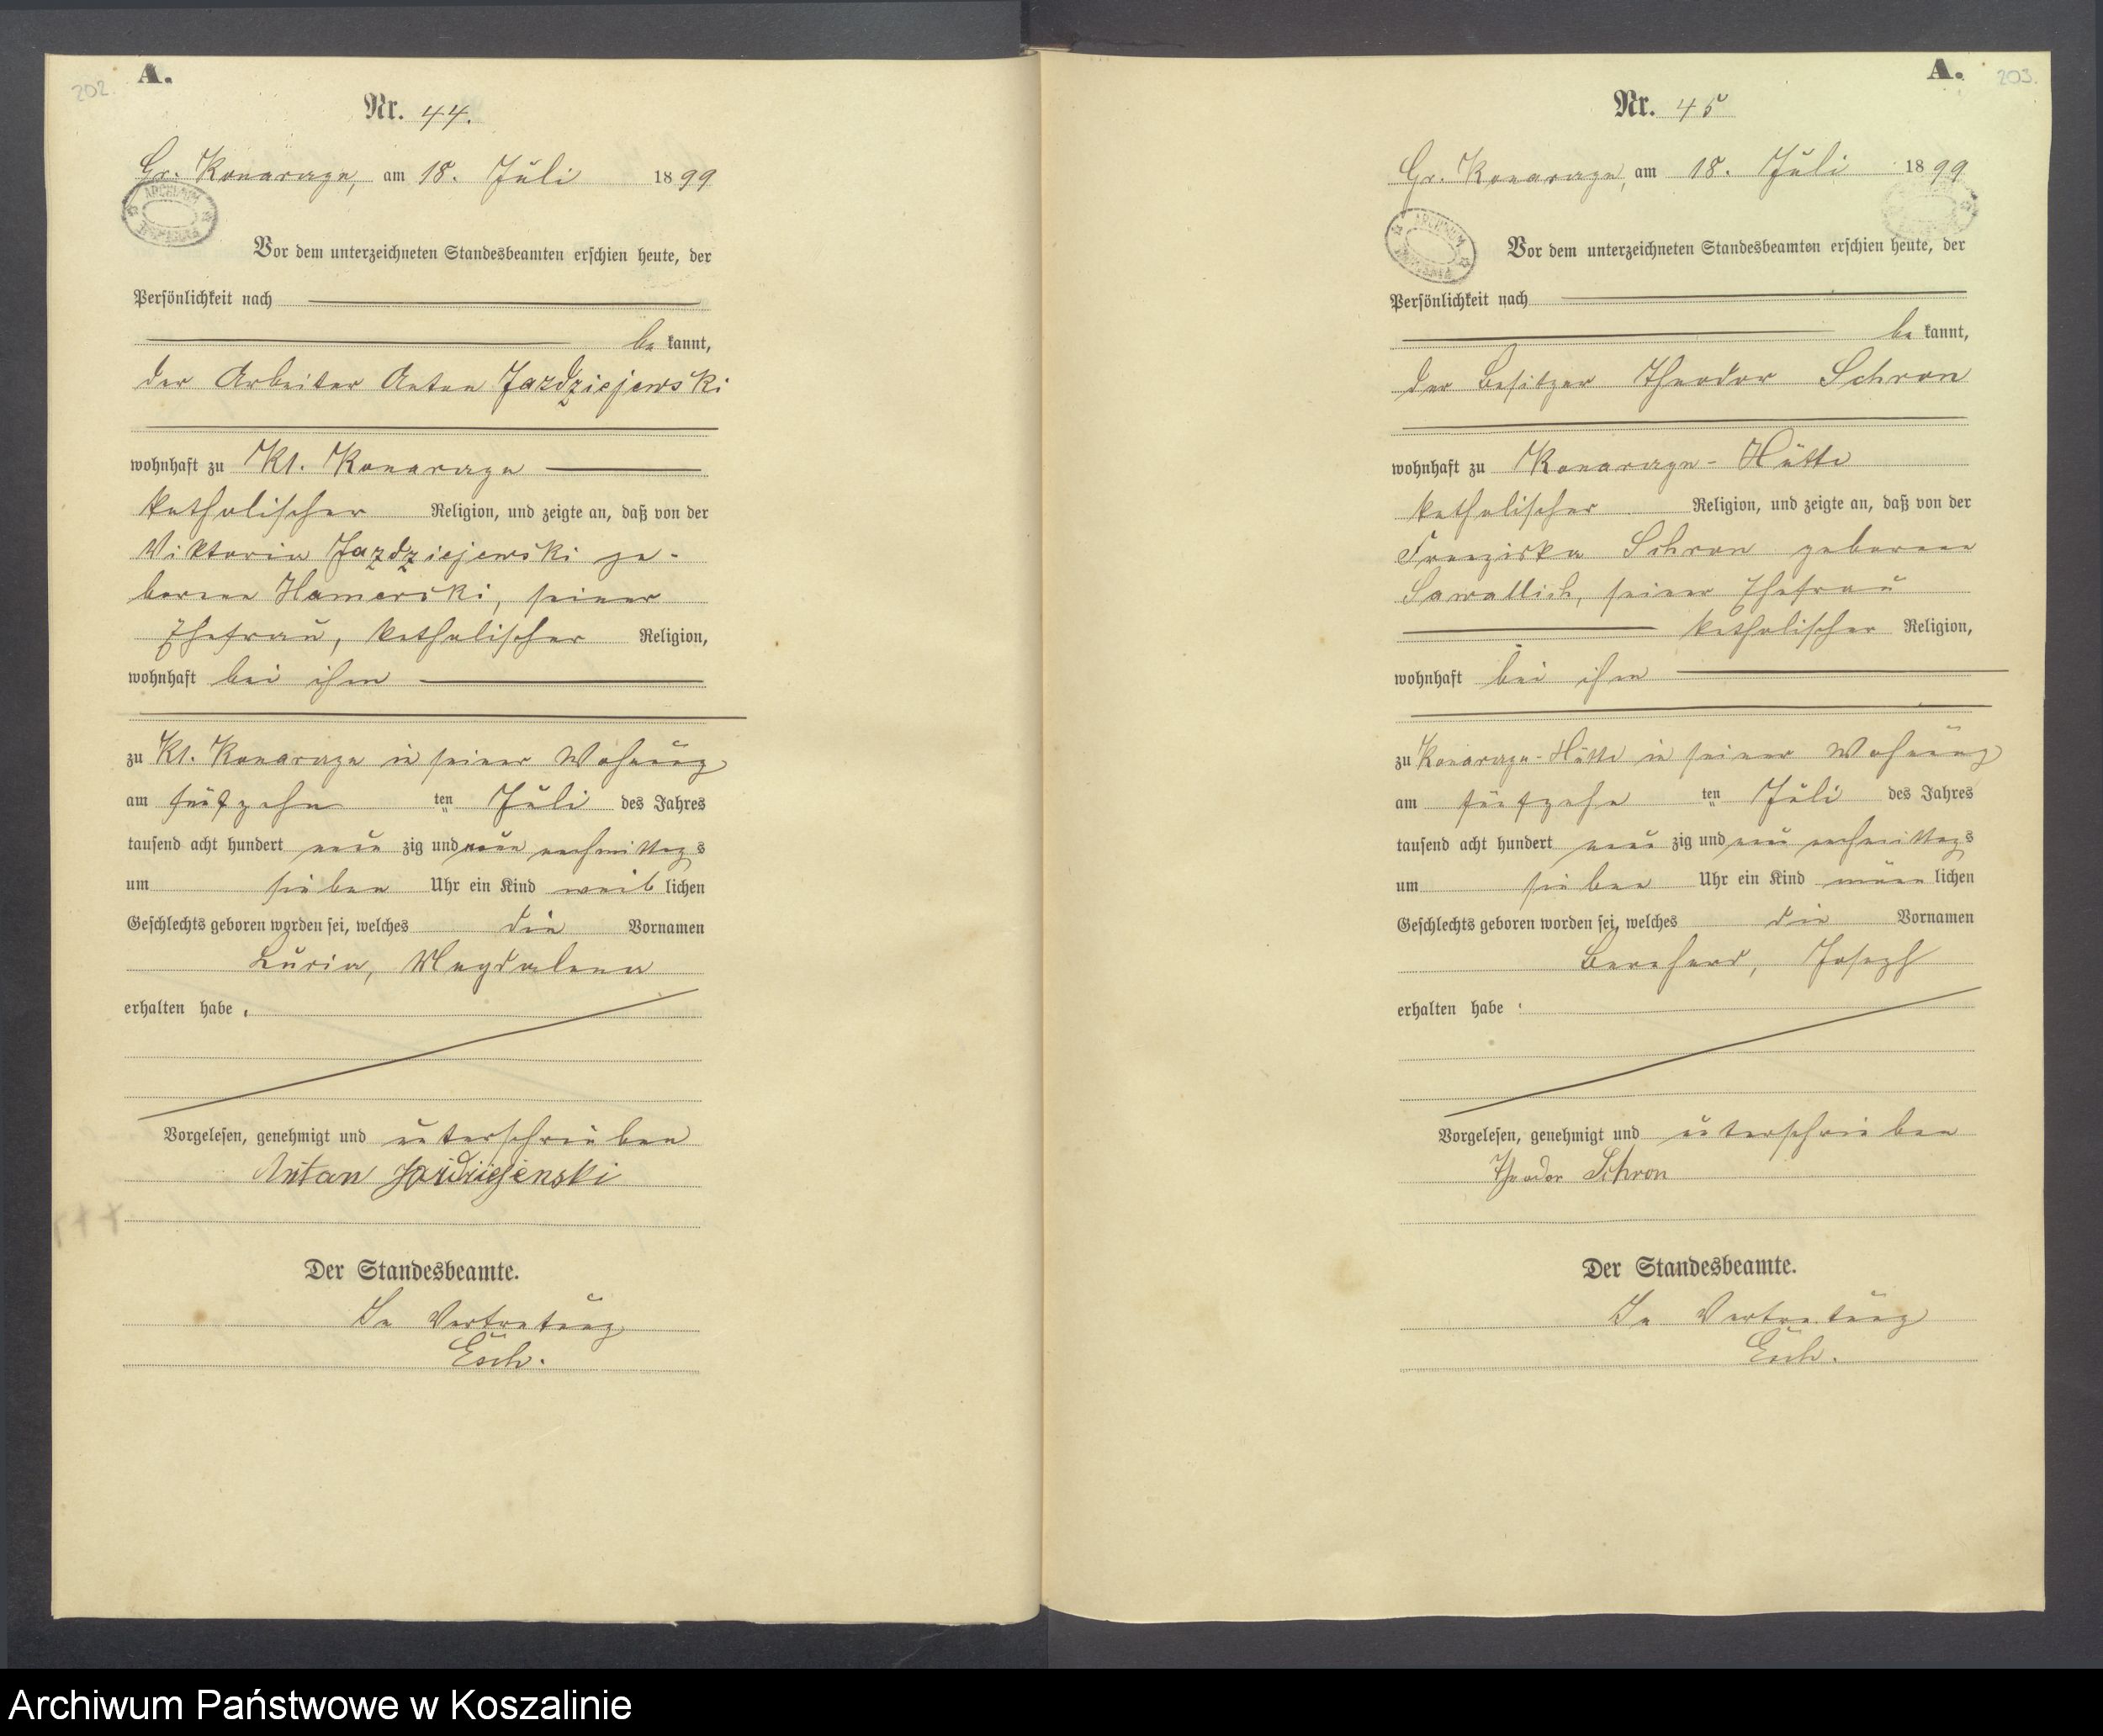 202.
A.
Nr. 44.
Gr. Konarczyn, am 18. Juli 1899
ARCHIWUM
Vor dem unterzeichneten Standesbeamten erschien heute, der
Persönlichkeit nach
be kannt,
der Arbeiter Anton Jazdziejewski
wohnhaft zu Kl. Konarczyn
katholischer Religion, und zeigte an, daß von der
Viktoria Jazdziejewski ge-
borene Hamerski, seiner
Ehefrau, katholischer Religion,
wohnhaft bei ihm
zu Kl. Konarczyn in seiner Wohnung
am fünfzehn ten Juli des Jahres
tausend acht hundert neun zig und neun nachmittags
um sieben Uhr ein Kind weib lichen
Geschlechts geboren worden sei, welches die Vornamen
Lucia, Magdalena
erhalten habe.
Vorgelesen, genehmigt und unterschrieben
Antan Jazdziejewski
+++
Der Standesbeamte.
In Vertretung
Esch.
A.
203.
Nr. 45
Gr. Konarczyn, am 18. Juli 1899
ARCHIWUM
Vor dem unterzeichneten Standesbeamten erschien heute, der
Persönlichkeit nach
be kannt,
der Besitzer Theodor Schron
wohnhaft zu Konarczyn-Hütte
katholischer Religion, und zeigte an, daß von der
Franziska Schron geborene
Sawallich, seiner Ehefrau
katholischer Religion,
wohnhaft bei ihm
zu Konarczyn-Hütte in seiner Wohnung
am fünfzehn ten Juli des Jahres
tausend acht hundert neun zig und neun nachmittags
um sieben Uhr ein Kind männ lichen
Geschlechts geboren worden sei, welches die Vornamen
Bernhard, Joseph
erhalten habe.
Vorgelesen, genehmigt und unterschrieben
Theodor Schron
Der Standesbeamte.
In Vertretung
Esch.
Archiwum Państwowe w Koszalinie